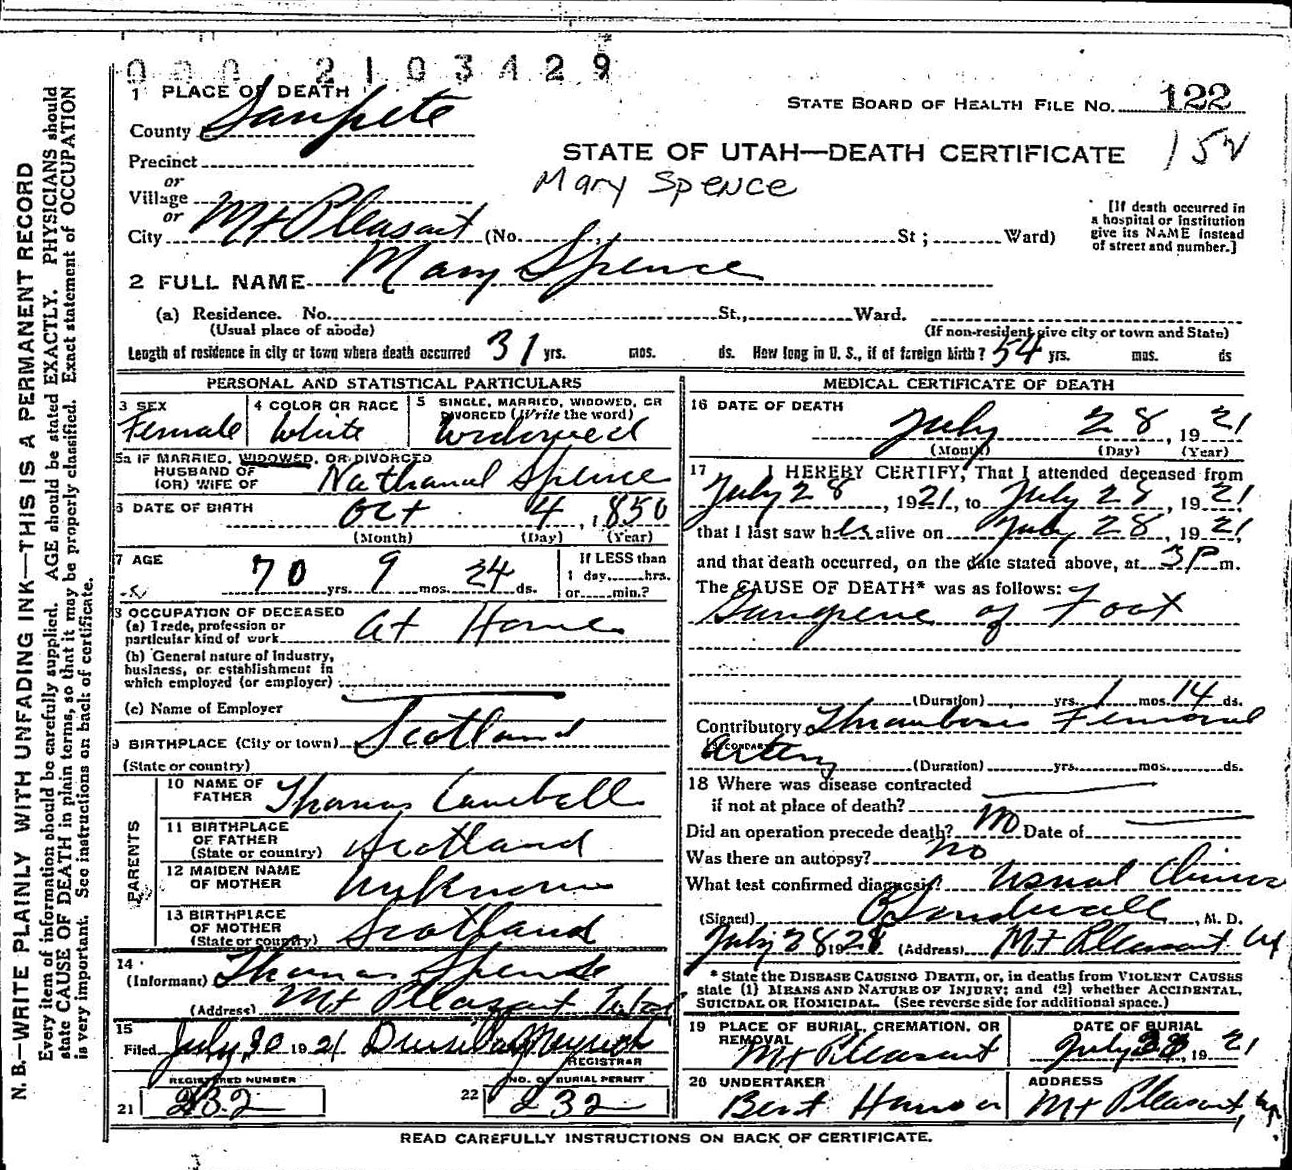 0 0 0 2 1 0 3 4 2 9
1 PLACE OF DEATH
County Sanpete
STATE BOARD OF HEALTH FILE NO. 122
Precinct
STATE OF UTAH—DEATH CERTIFICATE 152
or
Mary Spence
Village
or
City Mt Pleasant (No. St; Ward)
[If death occurred in
a hospital or institution
give its NAME instead
of street and number.]
2 FULL NAME Mary Spence
(a) Residence. No. St., Ward.
(Usual place of abode) (If non-resident give city or town and State)
Length of residence in city or town where death occurred 31 yrs. mos. ds. How long in U. S., if of foreign birth? 54 yrs. mos. ds
PERSONAL AND STATISTICAL PARTICULARS
3 SEX Female
4 COLOR OR RACE White
5 SINGLE, MARRIED, WIDOWED, OR
DIVORCED (Write the word)
Widowed
5a IF MARRIED, WIDOWED, OR DIVORCED
HUSBAND OF
(OR) WIFE OF Nathanal Spence
6 DATE OF BIRTH Oct 4, 1850
(Month) (Day) (Year)
7 AGE 70 yrs. 9 mos. 24 ds.
If LESS than
1 day......hrs.
or......min.?
8 OCCUPATION OF DECEASED
(a) Trade, profession or
particular kind of work At Home
(b) General nature of Industry,
business, or establishment in
which employed (or employer)
(c) Name of Employer
9 BIRTHPLACE (City or town) Scotland
(State or country)
PARENTS
10 NAME OF
FATHER Thomas Cambell
11 BIRTHPLACE
OF FATHER
(State or country) Scotland
12 MAIDEN NAME
OF MOTHER Unknown
13 BIRTHPLACE
OF MOTHER
(State or country) Scotland
14
(Informant) Thomas Spence
(Address) Mt Pleasant Utah
15
Filed July 30 1921
REGISTRAR
REGISTERED NUMBER
21 232
NO. OF BURIAL PERMIT
22 232
MEDICAL CERTIFICATE OF DEATH
16 DATE OF DEATH
July 28, 1921
(Month) (Day) (Year)
17 I HEREBY CERTIFY, That I attended deceased from
July 28, 1921, to July 28, 1921
that I last saw her alive on July 28, 1921,
and that death occurred, on the date stated above, at 3 P m.
The CAUSE OF DEATH* was as follows:
Gangrene of Foot
(Duration) yrs. 1 mos. 14 ds.
Contributory Thrombosis Femoral
(SECONDARY) Artery (Duration) yrs. mos. ds.
18 Where was disease contracted
if not at place of death?
Did an operation precede death? No Date of
Was there an autopsy? No
What test confirmed diagnosis? Usual Clinical
(Signed) , M. D.
July 28 1921 (Address) Mt Pleasant Ut
* State the DISEASE CAUSING DEATH, or, in deaths from VIOLENT CAUSES
state (1) MEANS AND NATURE OF INJURY; and (2) whether ACCIDENTAL,
SUICIDAL or HOMICIDAL. (See reverse side for additional space.)
19 PLACE OF BURIAL, CREMATION, OR
REMOVAL
Mt Pleasant
DATE OF BURIAL
July , 1921
20 UNDERTAKER
Bert
ADDRESS
Mt Pleasant, Ut.
READ CAREFULLY INSTRUCTIONS ON BACK OF CERTIFICATE.
N. B.—WRITE PLAINLY WITH UNFADING INK—THIS IS A PERMANENT RECORD
Every item of information should be carefully supplied. AGE should be stated EXACTLY. PHYSICIANS should
state CAUSE OF DEATH in plain terms, so that it may be properly classified. Exact statement of OCCUPATION
is very important. See instructions on back of certificate.